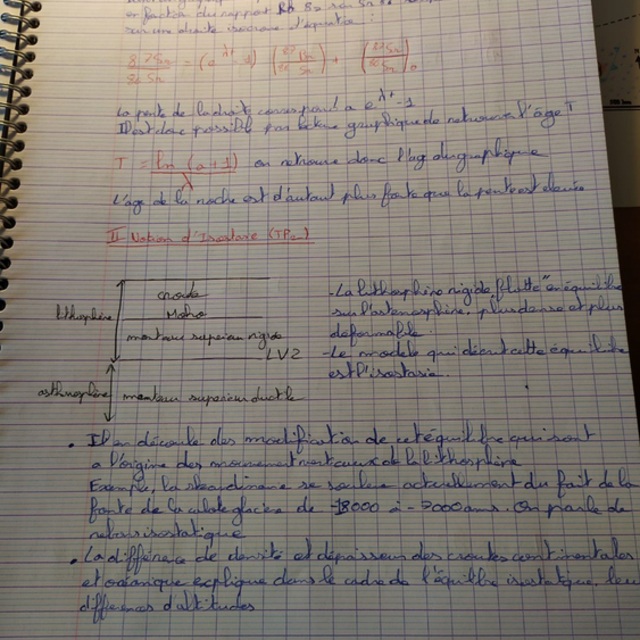 en fonction du rapport Rb 87
sur une droite isochrone d'équation :
= (e^λt - 1) +
La pente de la droite correspond à e^λt - 1
Il est donc possible par lecture graphique de retrouver l'âge T
T = ln (a+1) / λ on retrouve donc l'age du graphique
L'age de la roche est d'autant plus forte que la pente est élevée
II Notion d'Isostasie (TP2)
croute
lithosphère
Moho
manteau superieur rigide
LVZ
asthenosphère
manteau superieur ductile
- La lithosphère rigide "flotte" en équilibre
sur l'asthenosphère, plus dense et plus
deformable.
- Le modèle qui décrit cette équilibre
est l'isostasie.
• Il en découle des modification de cet équilibre qui sont
a l'origine des mouvements verticaux de la lithosphère
Exemple, la scandinavie se soulève actuellement du fait de la
fonte de la calote glacière de -18000 à - 2000 ans. On parle de
isostatique
• La différence de densité et d'épaisseur des croutes continentales
et océanique explique dans le cadre de l'équilibre isostatique, leur
différences d'altitudes